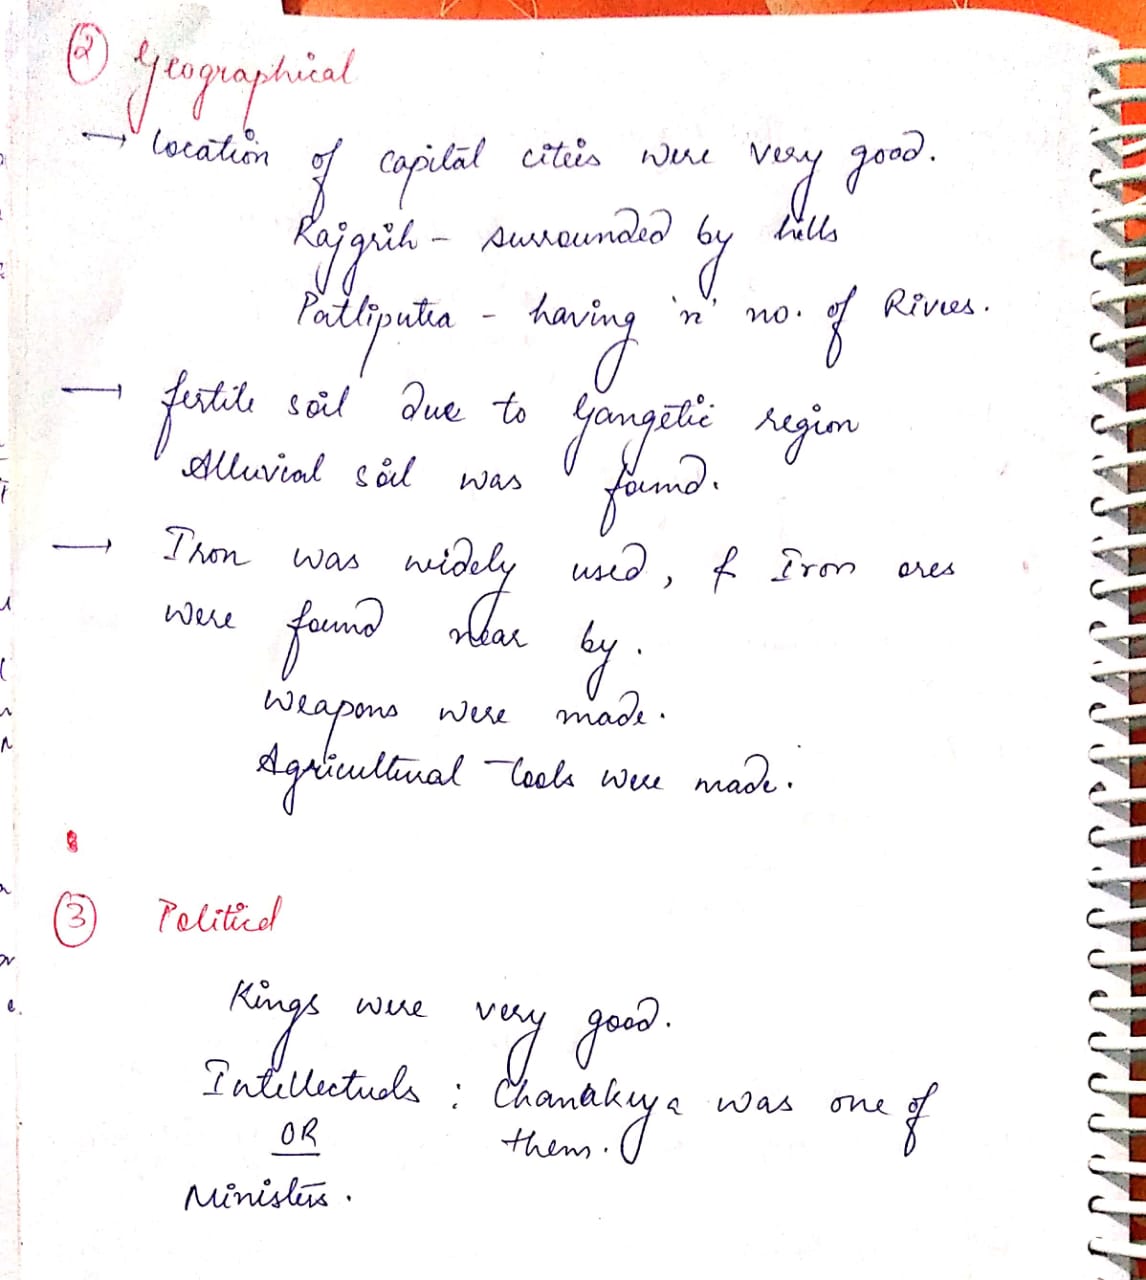 ② Geographical
→ Location of capital cities were very good.
Rajgrih - surrounded by hills
Patliputra - having 'n' no. of Rivers.
→ fertile soil due to Gangetic region
Alluvial soil was found.
→ Iron was widely used, & Iron ores
were found near by.
Weapons were made.
Agricultural tools were made.
③ Political
Kings were very good.
Intellectuals : Chanakya was one of
OR them.
Ministers.